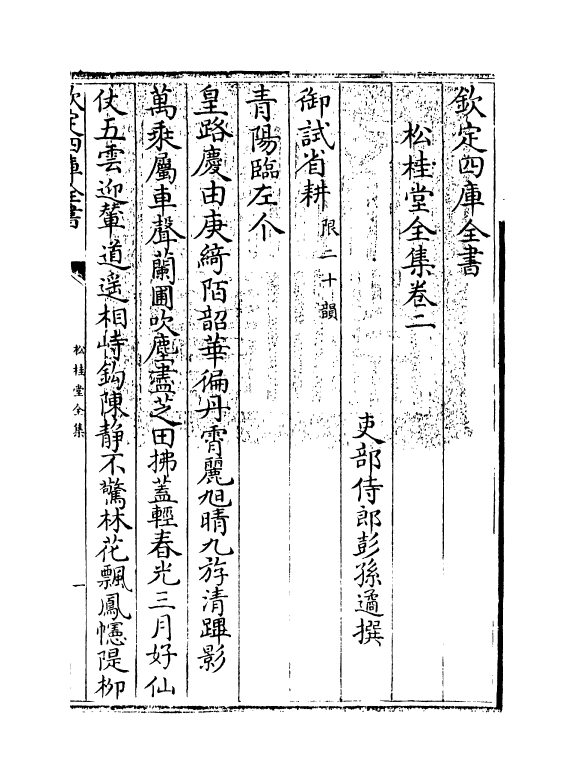 欽定四庫全書
松桂堂全集卷二
吏部侍郎彭孫遹撰
御試省耕限二十韻
青陽臨左个
皇路慶由庚綺陌韶華徧丹霄麗旭晴九斿清蹕影
萬乘屬車聲蘭圃吹塵盡芝田拂蓋輕春光三月好仙
仗五雲迎輦道遥相峙鈎陳靜不驚林花飄鳳幰隄柳
欽定四庫全書
松桂堂全集
一